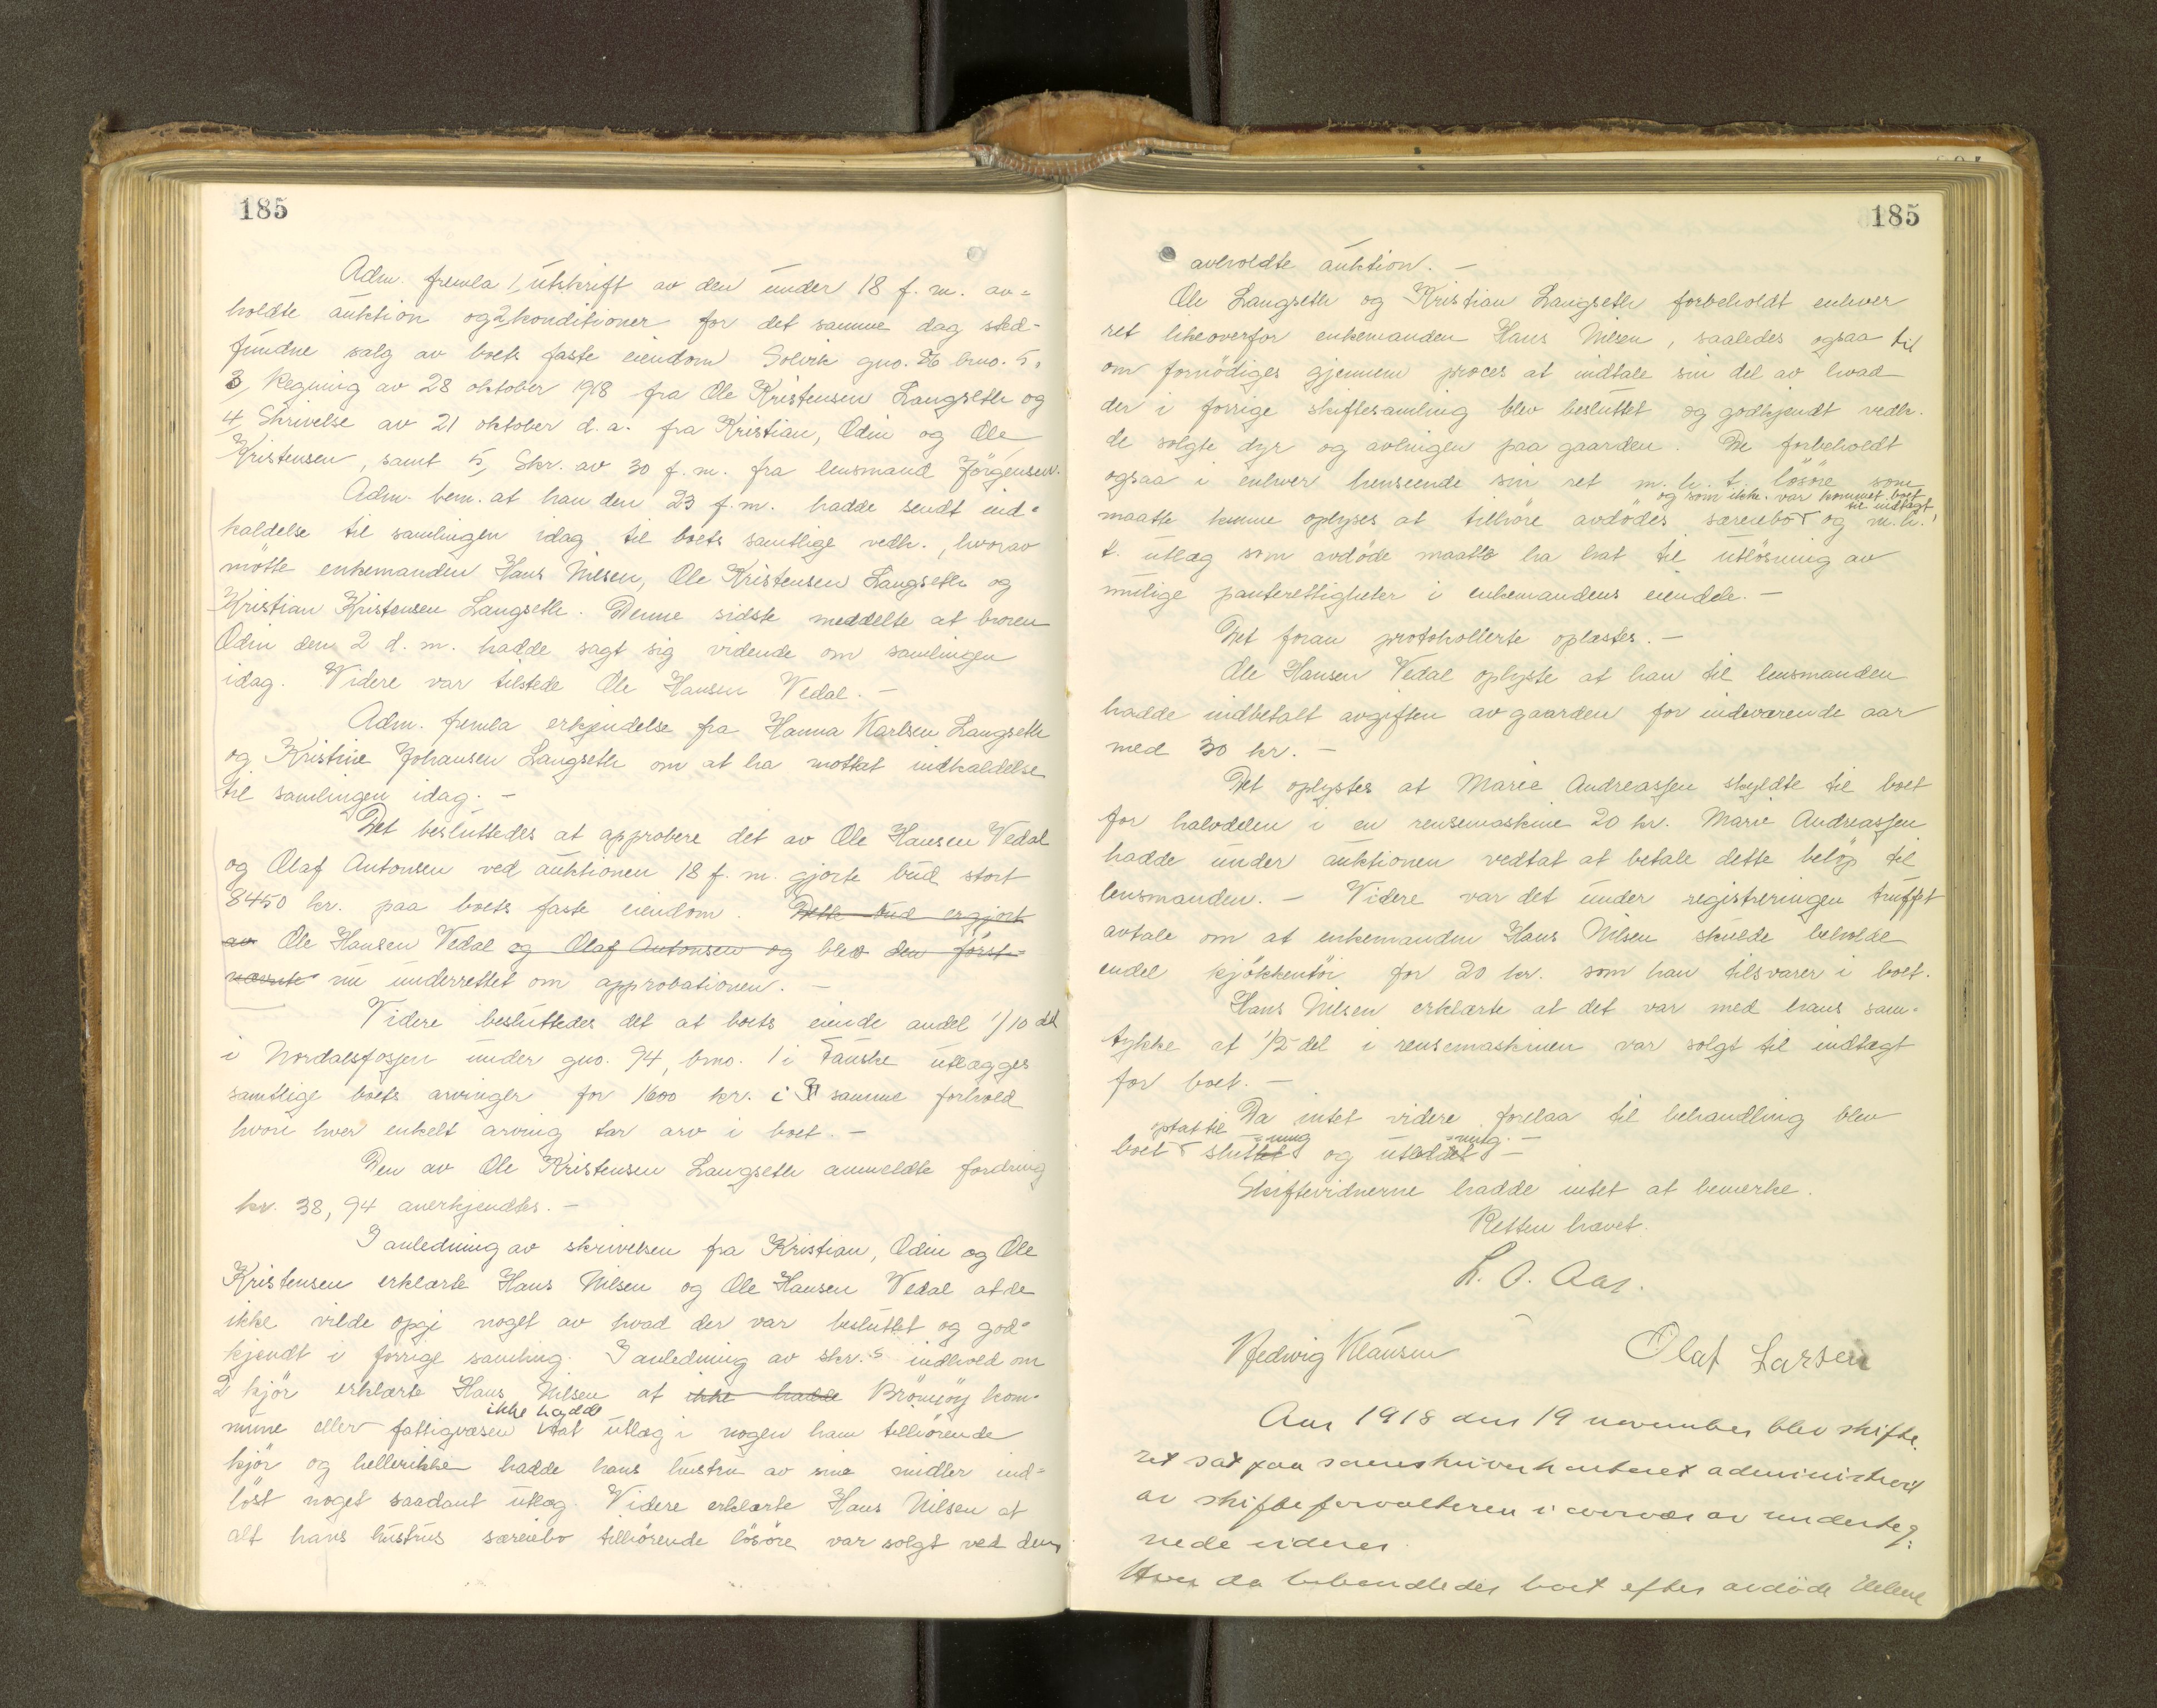 185
Adm. fremla 1, utskrift av den under 18 f. m. av=
holdte auktion og 2, konditioner for det samme dag sted-
fundne salg av boets faste eiendom Solvik gno. 26 brno. 5.
3, Regning av 28 oktober 1918 fra Ole Kristensen Langseth og
4, Skrivelse av 21 oktober d. a. fra Kristian, Odin og Ole
Kristensen, samt 5, Skr. av 30 f. m. fra lensmand Jörgensen.
Adm. bem. at han den 23 f. m. hadde sendt ind=
kaldelse til samlingen idag til boets samtlige vedk., hvorav
mötte enkemanden Hans Nilsen, Ole Kristensen Langseth og
Kristian Kristensen Langseth. Denne sidste meddelte at broren
Odin den 2 d. m. hadde sagt sig vidende om samlingen
idag. Videre var tilstede Ole Hansen Vedal. -
Adm. fremla erkjendelse fra Hanna Karlsen Langseth
og Kristine Johansen Langseth om at ha mottat indkaldelse
til samlingen idag. -
Det besluttedes at approbere det av Ole Hansen Vedal
og Olaf Antonsen ved auktionen 18 f. m. gjorte bud stort
8450 kr. paa boets faste eiendom. Dette bud er gjort
av Ole Hansen Vedal og Olaf Antonsen og blev den först=
nævnte nu underrettet om approbationen. -
Videre besluttedes det at boets eiende andel 1/10 del
i Nordalsfosjen under gno. 94, brno. 1 i Fauske utlægges
samtlige boets arvinger for 1600 kr. i samme forhold
hvori hver enkelt arving tar arv i boet. -
Den av Ole Kristensen Langseth anmeldte fordring
kr. 38,94 anerkjendtes. -
I anledning av skrivelsen fra Kristian, Odin og Ole
Kristensen erklærte Hans Nilsen og Ole Hansen Vedal at de
ikke vilde opgi noget av hvad der var besluttet og god=
kjendt i forrige samling. I anledning av skr.s indhold om
2 kjör erklærte Hans Nilsen at ikke hadde Brönnöy kom=
ikke hadde
mune eller fattigvæsen hat utlæg i nogen ham tilhörende
kjör og heller ikke hadde hans hustru av sine midler ind=
löst noget saadant utlæg. Videre erklærte Hans Nilsen at
alt hans hustrus særeiebo tilhörende lösöre var solgt ved den
185
avholdte auktion. -
Ole Langseth og Kristian Langseth forbeholdt enhver
ret likeoverfor enkemanden Hans Nilsen, saaledes ogsaa til
om fornödiges gjennem proces at indtale sin del av hvad
der i forrige skiftesamling blev besluttet og godkjendt vedk.
de solgte dyr og avlingen paa gaarden. De forbeholdt
ogsaa i enhver henseende sin ret m. h. t. lösöre som
og som ikke var kommet boet
til indtægt
maatte kunne oplyses at tilhöre avdödes særeiebo og m. h.
t. utlæg som avdöde maatte ha hat til utlösning av
mulige panterettigheter i enkemandens eiendele. -
Det foran protokollerte oplæstes. -
Ole Hansen Vedal oplyste at han til lensmanden
hadde indbetalt avgiften av gaarden for indeværende aar
med 30 kr. -
Det oplystes at Marie Andreassen skyldte til boet
for halvdelen i en rensemaskine 20 kr. Marie Andreassen
hadde under auktionen vedtat at betale dette belöp til
lensmanden. - Videre var det under registreringen truffet
avtale om at enkemanden Hans Nilsen skulde beholde
endel kjökkentöi for 20 kr. som han tilsvarer i boet.
Hans Nilsen erklærte at det var med hans sam=
tykke at 1/2 del i rensemaskinen var solgt til indtægt
for boet. -
Da intet videre forelaa til behandling blev
optat til
=ning
=ning. -
boet sluttet og utloddet -
Skiftevidnerne hadde intet at bemerke.
Retten hævet.
L. O. Aas.
Hedvig Klausen
Olaf Larsen
Aar 1918 den 19 november blev skifte
ret sat paa sorenskriverkontoret administrert
av skifteforvalteren i overvær av underteg=
nede vidner.
Hvor da behandledes boet efter avdöde Helene